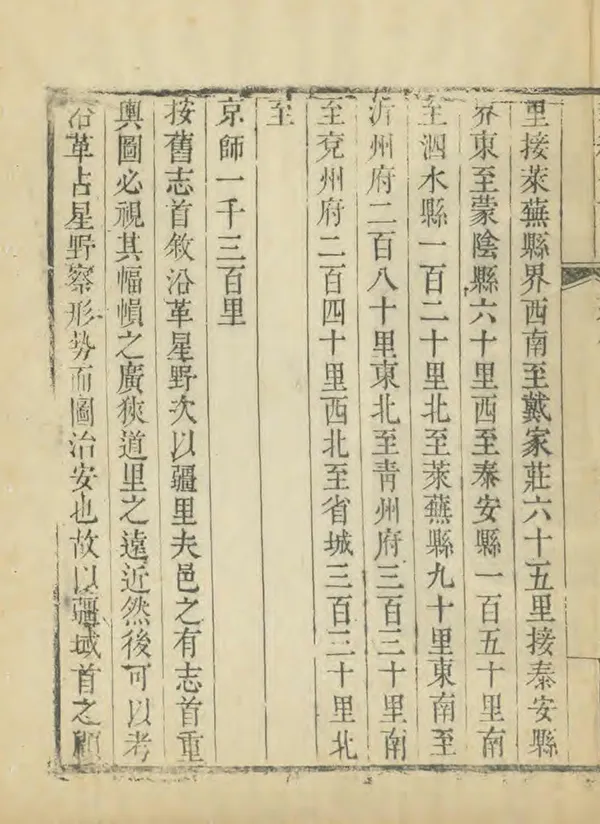 里接萊蕪縣界西南至戴家莊六十五里接泰安縣
界東至蒙陰縣六十里西至泰安縣一百五十里南
至泗水縣一百二十里北至萊蕪縣九十里東南至
沂州府二百八十里東北至青州府三百三十里南
至兗州府二百四十里西北至省城三百三十里北
至
京師一千三百里
按舊志首敘沿革星野次以疆里夫邑之有志首重
輿圖必視其幅幀之廣狹道里之遠近然後可以考
沿革占星野察形勢而圖治安也故以疆域首之